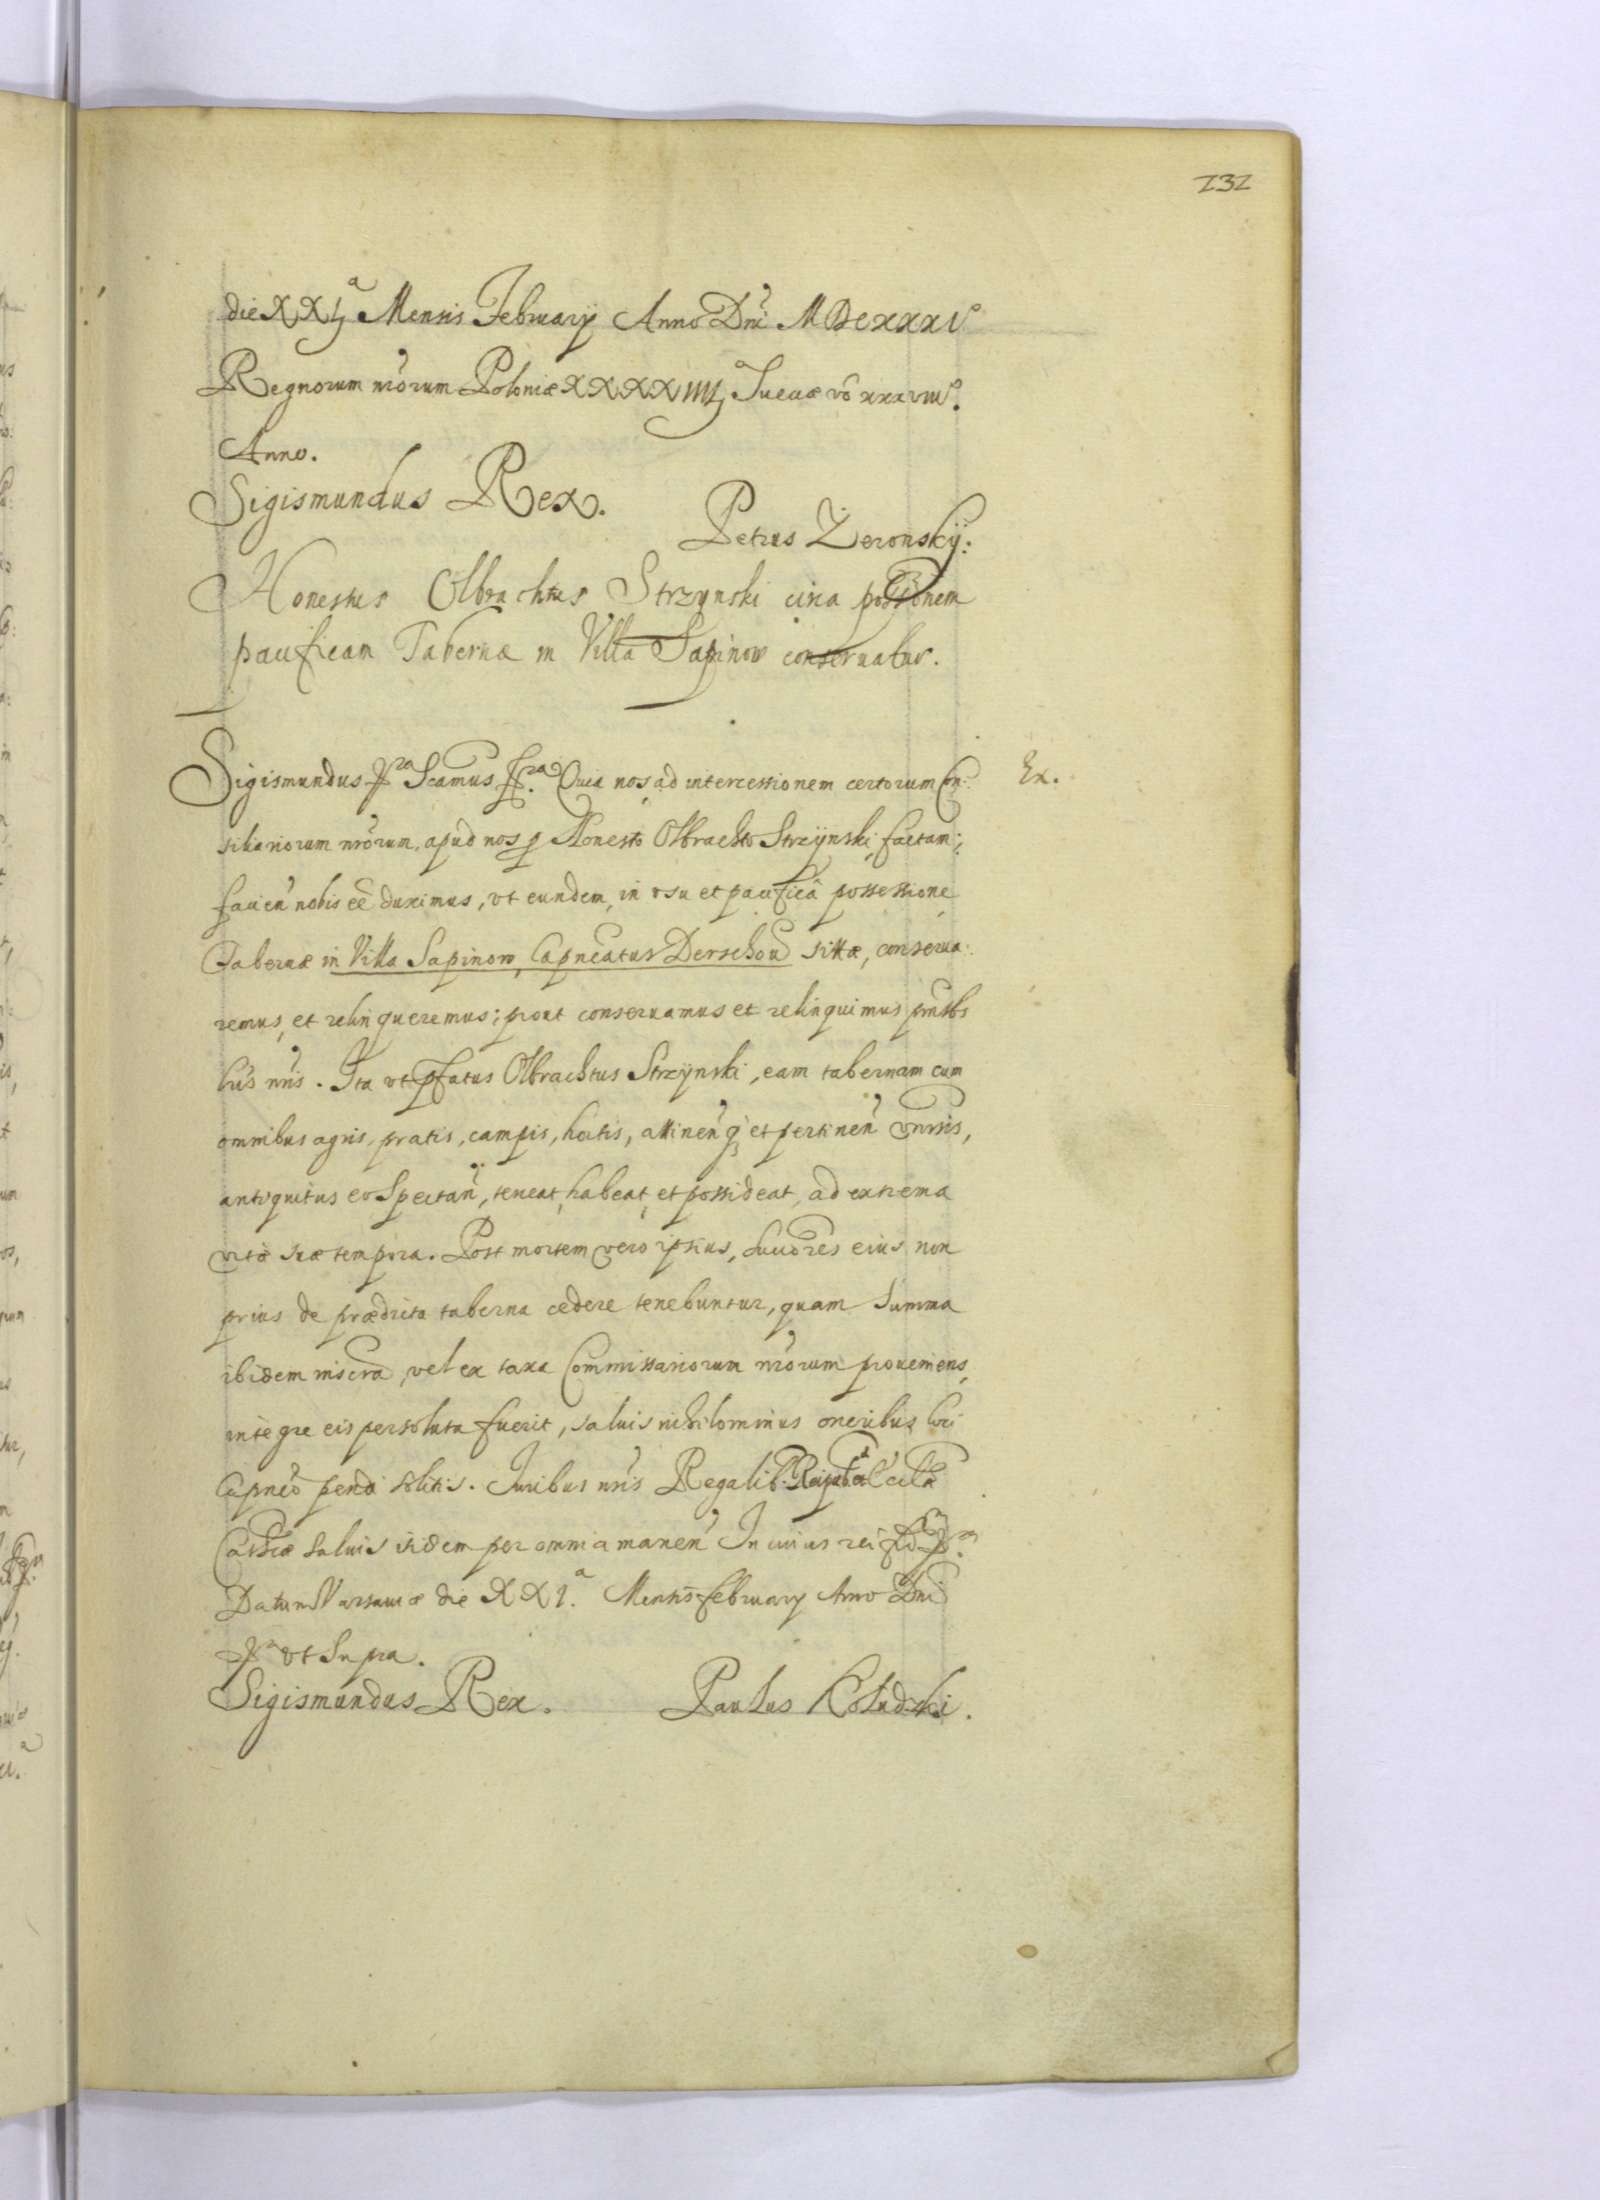 232
die XXIJa Mensis February Anno Dni MDCXXXI
Regnorum nrorum Poloniæ XXXXIIIIJ Sueciæ vo xxxviiio.
Anno.
Sigismundus Rex.
Petrus Żeronskÿ:
Honestus Olbrachtus Strzynski circa possionem
pacificam Tabernæ in Villa Sapinow conseruatur.
Sigismundus &ra Scamus &ra. Quia nos, ad intercessionem certorum Con:
Ex.
siliariorum nrorum, apud nos p Honesto Olbrachto Strzÿnski, factam;
facien nobis eê duximus, vt eundem, in vsu et pacificâ possessione
Tabernæ in Villa Sapinow, Capneatus Derschou sittæ, conserua:
remus, et relinqueremus; prout conseruamus et relinquimus pntibs
lris nris. Ita vt pfatus Olbrachtus Strzÿnski, eam tabernam cum
omnibus agris, pratis, campis, hortis, attinen q et pertinen vnrsis,
antiquitus eo Spectan, teneat, habeat, et possideat, ad extrema
vitæ suæ tempora. Post mortem vero ipsius, Succores eius non
prius de prædicta taberna cedere tenebuntur, quam Summa
ibidem inscra, vel ex taxa Commissariorum nrorum proueniens,
integre eis persoluta fuerit, saluis nihilominus oneribus loci
Capneo pendi solitis. Iuribus nris Regalib. Reipub. et Ecclæ
Carthcæ saluis ibidem per omnia manen In cuius rei fid &ra.
Datum Varsauiæ die XXI.a Mensis February Anno Dni
&a vt Supra.
Sigismundus Rex.
Paulus Koludzki.